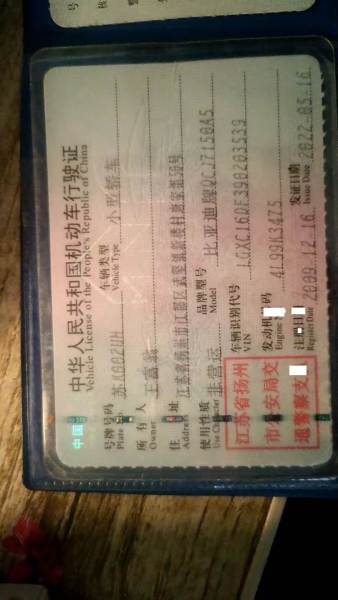 中华人民共和国机动车行驶证
Vehicle License of the People's Republic of China
号牌号码
Plate No.
车辆类型 小型轿车
Vehicle Type
所有人 王富
Owner
住址 江苏省扬州市江都区武坚镇新楼村唐家组30号
Address
使用性质 非营运
Use Character
品牌型号 比亚迪牌QCJ7150A5
Model
江苏省扬州
市公安局交
通警察支
车辆识别代号 LGXC16DF390203539
VIN
发动机 码 4L99K3475
Engine
注 日 2009-12-16
Register Date
发证日期 2022-05-16
Issue Date
中国